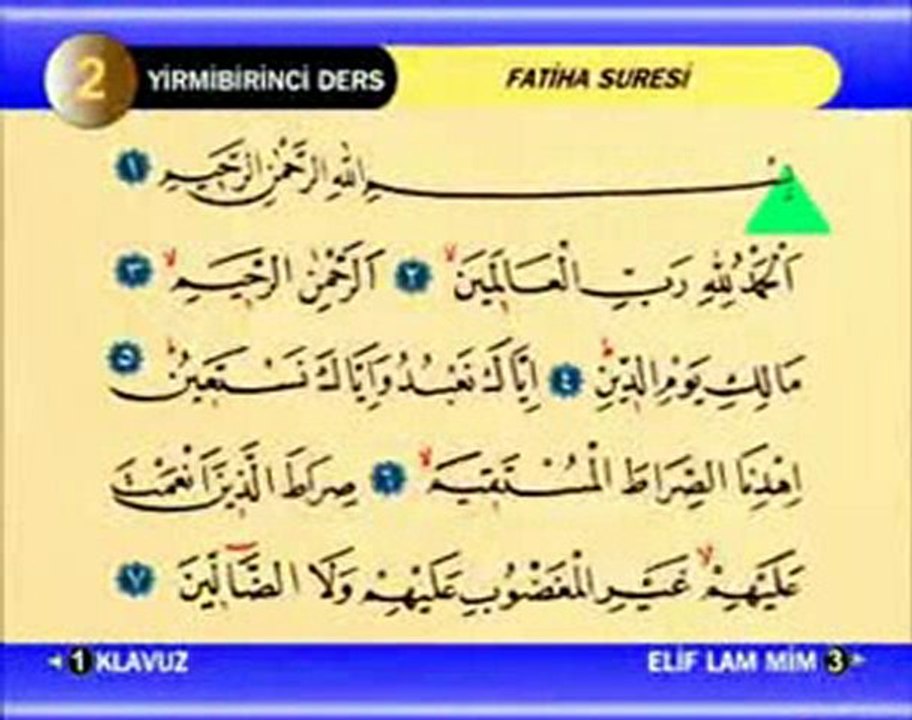 2 YİRMİBİRİNCİ DERS FATİHA SURESİ
بِسْمِ اللّٰهِ الرَّحْمٰنِ الرَّحِيمِ ١
اَلْحَمْدُ لِلّٰهِ رَبِّ الْعَالَمِينَ ۙ ٢ اَلرَّحْمٰنِ الرَّحِيمِ ۙ ٣
مَالِكِ يَوْمِ الدِّينِ ۜ ٤ اِيَّاكَ نَعْبُدُ وَاِيَّاكَ نَسْتَعِينُ ۜ ٥
اِهْدِنَا الصِّرَاطَ الْمُسْتَقِيمَ ۙ ٦ صِرَاطَ الَّذِينَ اَنْعَمْتَ
عَلَيْهِمْ ۙ غَيْرِ الْمَغْضُوبِ عَلَيْهِمْ وَلَا الضَّٓالِّينَ ٧
1 KLAVUZ ELİF LAM MİM 3